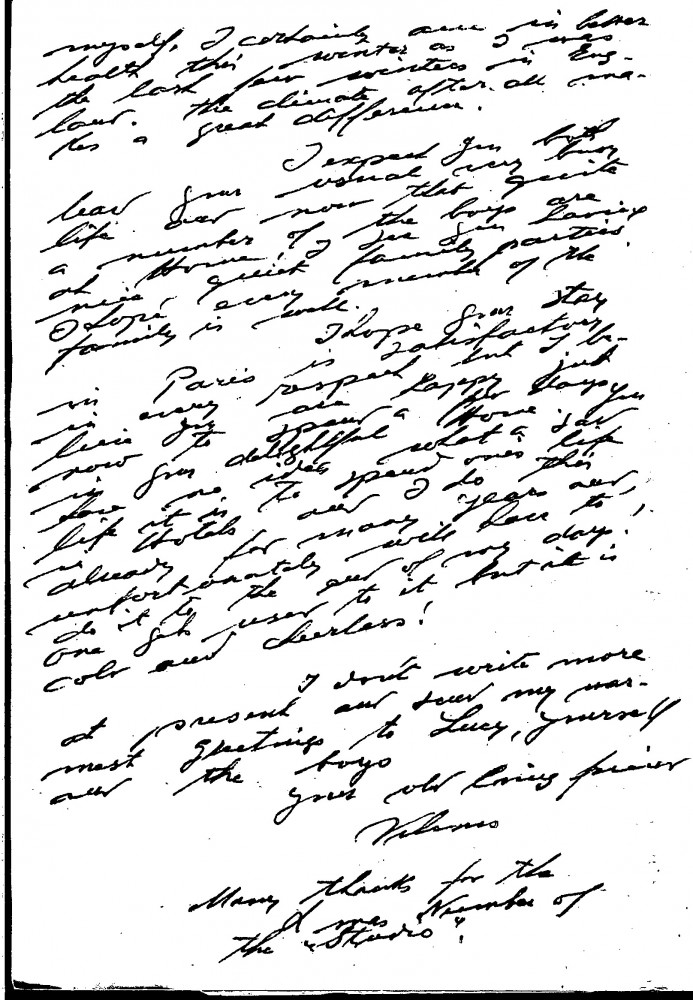 myself, I certainly am in better
health this winter as I was
the last few winters in Eng-
land. The climate after all ma-
kes a great difference.
I expect you both
lead your usual very busy
life and now that quite
a number of the boys are
at Home, I see you having
nice quiet family parties.
I hope every member of the
family is well.
I hope your stay
in Paris is satisfactory
in every respect but I be-
lieve you are happy just
now to spend a few days
in your delightful Home. You
have no idea what a sad
life it is to spend ones life
in Hotels and I do this
already for many years and
unfortunately will have to
do it to the end of my days!
one gets used to it but it is
cold and cheerless!
I don't write more
at present and send my war-
mest greetings to Lucy, yourself
and the boys
your old loving friend
Many thanks for the
X mas Number of
the "Studio".